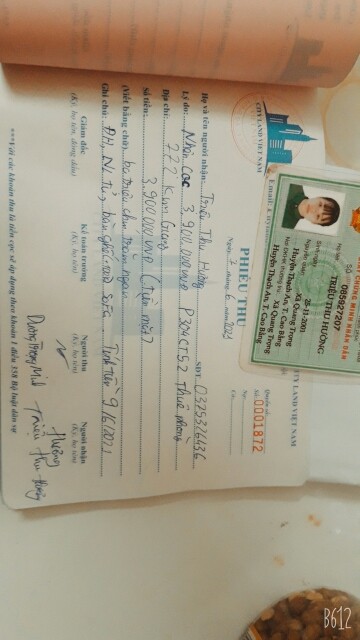 CITY LAND VIỆT NAM
PHIẾU THU
Ngày 7 tháng 6 năm 2023
Quyển số:
Số: 0001872
Nợ:
Có:
Họ và tên người nhận: Triệu Thu Hường SĐT: 0325326436
Lý do: Nhận cọc 3.900.000 VNĐ P304CT5.2 Thuê phòng
Địa chỉ: 277 Kim Giang
Số tiền: 3.900.000 VNĐ (Tiền mặt)
(Viết bằng chữ): ba triệu chín trăm ngàn
Ghi chú: ĐH, NL, tủ, bàn ghế
sofa. Tính tiền 9/6/2023
Giám đốc
(Ký, họ tên, đóng dấu)
Kế toán trưởng
(Ký, họ tên)
Người thu
(Ký, họ tên)
Người nhận
(Ký, họ tên)
Hường
Triệu Thu Hường
***Với các khoản thu là tiền cọc sẽ áp dụng theo khoản 1 điều 358 Bộ luật dân sự
CHỨNG MINH NHÂN DÂN
SỐ 085927297
Họ tên
TRIỆU THU HƯỜNG
Sinh ngày
Xã Quang Trọng
Huyện Thạch An, T. Cao Bằng
Xã Quang Trọng
Huyện Thạch An, T. Cao Bằng
B612